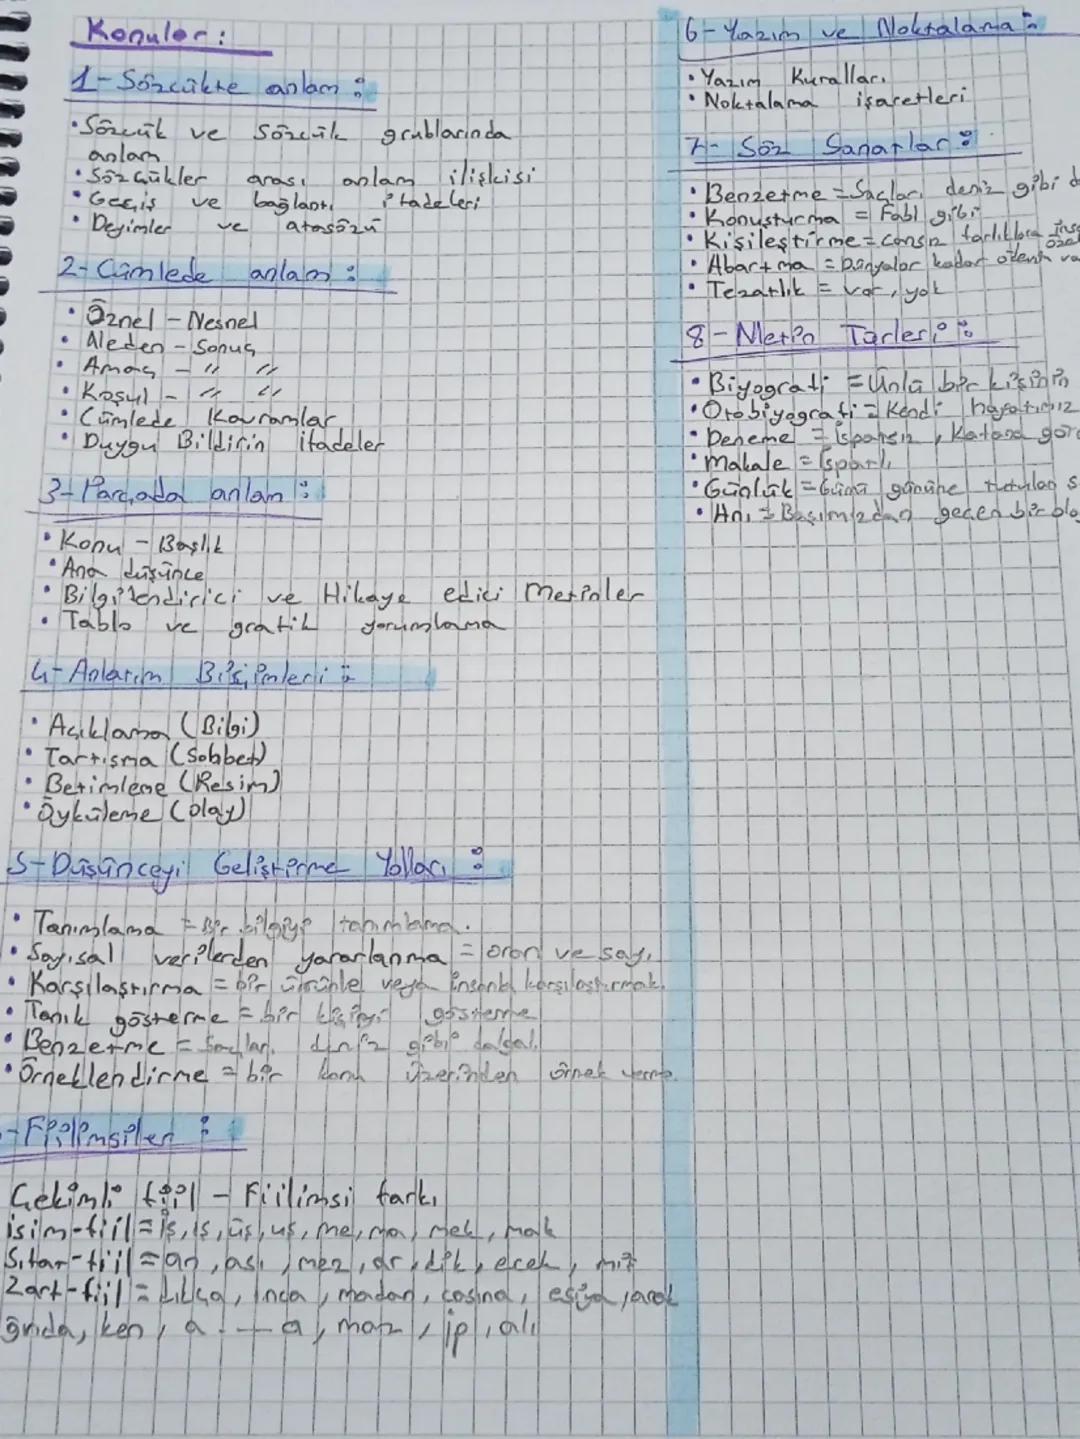 Konular:
1-Sözcükte anlam:
• Sözcük ve sözcük grublarında
anlam
• Sözcükler arası anlam ilişkisi
• Geçiş ve bağlantı ifadeleri
• Deyimler ve atasözü
2-Cümlede anlam:
• Öznel - Nesnel
• Neden - Sonuç
• Amaç - " "
• Koşul - " "
• Cümlede Kavramlar
• Duygu Bildirin ifadeler
3-Parçada anlam:
• Konu - Başlık
• Ana düşünce
• Bilgilendirici ve Hikaye edici Metinler
• Tablo ve grafik yorumlama
4-Anlatım Biçimleri:
• Açıklama (Bilgi)
• Tartışma (Sohbet)
• Betimleme (Resim)
• Öyküleme (olay)
5-Düşünceyi Geliştirme Yolları:
• Tanımlama = Bir bilgiyi tanımlama.
• Sayısal verilerden yararlanma = oran ve sayı
• Karşılaştırma = bir ürünle veya insanla karşılaştırmak.
• Tanık gösterme = bir kişiyi gösterme
• Benzetme = Saçları deniz gibi dalgalı
• Örneklendirme = bir konu üzerinden örnek verme.
-Fiilimsiler:
Çekimli fiil - Fiilimsi farkı
isim-fiil = iş, ış, üş, uş, me, ma, mek, mak
Sıfat-fiil = an, ası, mez, ar, dik, ecek, miş
Zarf-fiil = dıkça, ınca, madan, casına, esiye, arak
ğında, ken, a - a, maz, ip, alı
6-Yazım ve Noktalama:
• Yazım Kuralları
• Noktalama işaretleri
7- Söz Sanatlar:
• Benzetme = Saçları deniz gibi d
• Konuşturma = Fabl gibi
• Kişileştirme = cansız varlıklara insa
öze
• Abartma = Dünyalar kadar ödevim va
• Tezatlık = var, yok
8-Metin Türleri:
• Biyografi = Ünlü bir kişinin
• Otobiyografi = Kendi hayatımız
• Deneme = ispatsız, Kafana göre
• Makale = ispatlı
• Günlük = Günü gününe tutulan s
• Anı = Başımızdan geçen bir olay